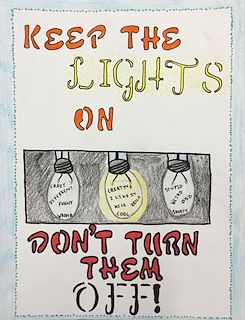 KEEP THE
LIGHTS
ON
CRAZY
DIFFERENT
FUNNY
WEIRD
CREATIVE
I LIKE IT
NICE
COOL
STUPID
WEIRD ODD
DON'T TURN
THEM
OFF!